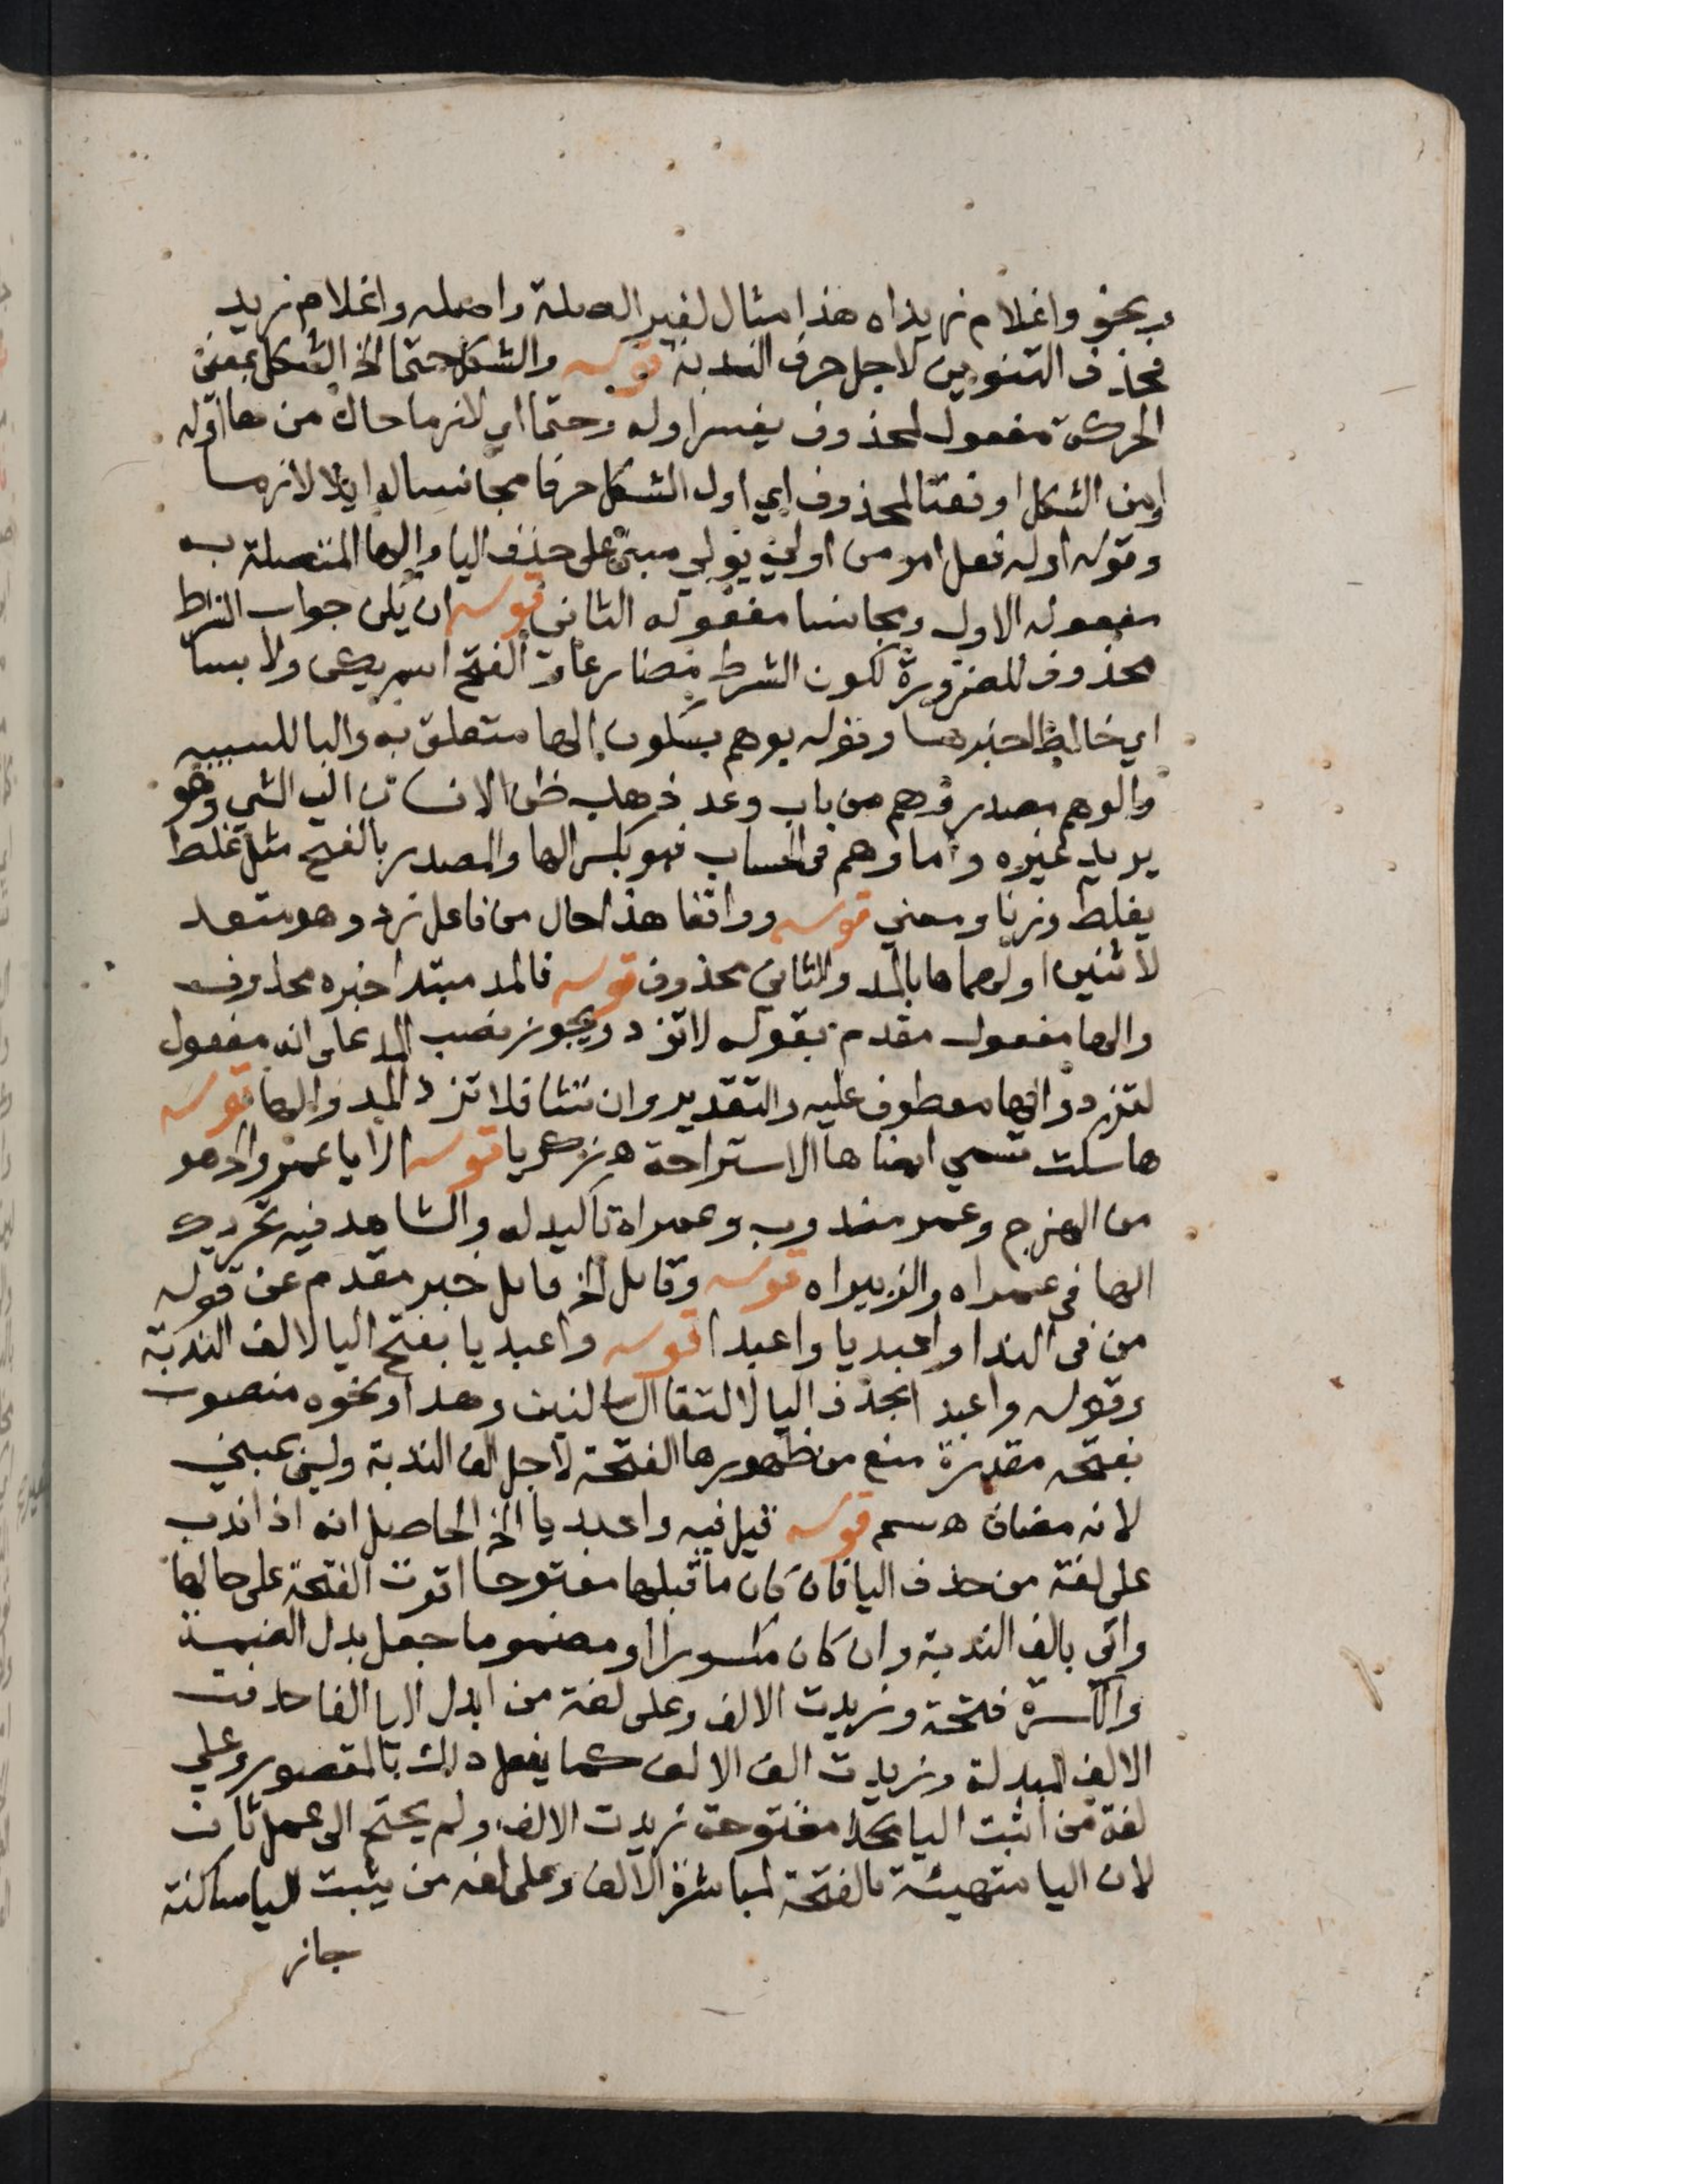 ونحو واغلام زيداه هذا مثال لغير الصلة واصله واغلام زيد
فحذف التنوين لاجل حرف الندبة قوله والشكل حتما الخ الشكل بمعنى
الحركة مفعول لمحذوف يفسر اوله وحتما اي لازما حال من ها اوله
او من الشكل او نعتا لمحذوف اي اول الشكل حرفا مجانسا له ايلا لازما
وقوله اوله فعل امر من اولي يولي مبني على حذف اليا والها المتصلة به
مفعوله الاول ومجانسا مفعوله الثاني قوله ان يكن جواب الشرط
محذوف للضرورة لكون الشرط مضارعا و الفتح اسم يكن ولا بسا
اي خالطا خبرها وقوله بوهم بسكون الها متعلق به والبا للسببيه
والوهم مصدر وهم من باب وعد ذهاب ظن الانسان الي الشي وهو
يريد غيره واما وهم في الحساب فهو بكسر الها والمصدر بالفتح مثل غلط
يغلط وزنا ومعني قوله وواقفا هذا حال من فاعل زد وهو متعد
لاثنين اولهما ها بالمد والثاني محذوف قوله فالمد مبتدا خبره محذوف
والها مفعول مقدم بقوله لا تزد ويجوز نصب المد على انه مفعول
لتزد والها معطوف عليه والتقدير وان تشا فلا تزد المد والها قوله
ها سكت تسمي ايضا ها الاستراحة ه زكريا قوله الا يا عمرو الخ هو
من الهزج وعمر مندوب وعمراه تاكيد له والشاهد فيه تحريك
الها في عمراه والزبيراه قوله وقايل الخ قايل خبر مقدم عن قوله
من في الندا واعبديا واعبدا قوله واعبديا بفتح اليا لالف الندبة
وقوله واعبدا بحذف اليا لالتقا الساكنين وهذا ونحوه منصوب
بفتحه مقدرة منع من ظهورها الفتحة لاجل الف الندبة وليس بمبني
لانه مضاف ه سم قوله قيل فيه واعبديا الخ الحاصل انه اذا ندب
على لغة من حذف اليا فان كان ما قبلها مفتوحا اقرت الفتحة على حالها
واتي بالف الندبة وان كان مكسورا او مضموما جعل بدل الضمة
والكسرة فتحة وزيدت الالف وعلى لغة من ابدل اليا الفا حذفت
الالف المبدلة وزيدت الف الالف كما يفعل ذلك بالمقصور وعلي
لغة من اثبت اليا مفتوحة زيدت الالف ولم يحتج الى عمل ثان
لان اليا متهيئة بالفتحة لمباشرة الالف وعلى لغه من يثبت اليا ساكنة
جاز